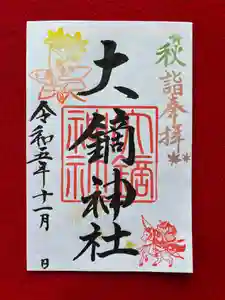 秋詣奉拝
大鏑神社
令和五年十一月 日